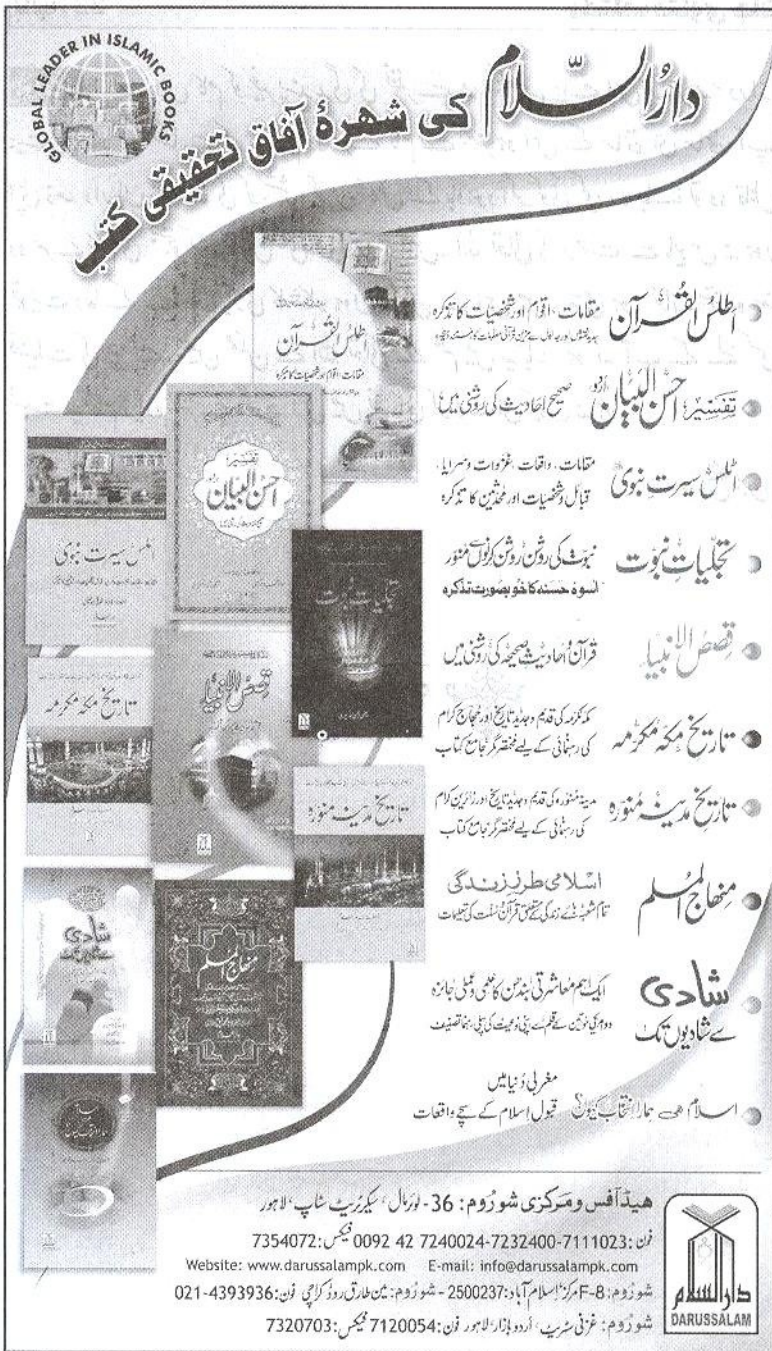 GLOBAL LEADER IN ISLAMIC BOOKS
دارُالسّلام کی شهرۂ آفاق تحقیقی کتب
اطلسُ القُرآن
مقامات، اقوام اور شخصیات کا تذکرہ
تفسیر احسنُ البیان اردو
صحیح احادیث کی روشنی میں
اطلس سیرتِ نبویؐ
مقامات، واقعات، غزوات وسرایا،
قبائل و شخصیات اور محدثین کا تذکرہ
تجلیاتِ نبوّت
نبوّت کی روشن روشن کرنوں سے منوّر
اسوۂ حسنہ کا خوبصورت تذکرہ
قصصُ الانبیاء
قرآن و احادیثِ صحیحہ کی روشنی میں
تاریخِ مکّہ مکرّمہ
مکہ مکرمہ کی قدیم و جدید تاریخ اور حجاج کرام
کی رہنمائی کے لیے مختصر مگر جامع کتاب
تاریخِ مدینہ منوّرہ
مدینہ منورہ کی قدیم و جدید تاریخ اور زائرین کرام
کی رہنمائی کے لیے مختصر مگر جامع کتاب
منہاجُ المسلم
اسلامی طرزِ زندگی
تمام شعبہ ہائے زندگی سے متعلق قرآن و سنت کی تعلیمات
شادی
سے شادیوں تک
ایک اہم معاشرتی بندھن کا علمی و عملی جائزہ
اسلام ہی ہمارا انتخاب کیوں؟
مغربی دُنیا میں
قبولِ اسلام کے سچے واقعات
اطلسُ القُرآن
مقامات، اقوام اور شخصیات کا تذکرہ
تفسیر
احسنُ البیان
اطلس سیرت نبوی
تجلیاتِ نبوّت
قصصُ الانبیاء
تاریخ مکہ مکرمہ
تاریخ مدینہ منورہ
منہاجُ المسلم
شادی
سے شادیوں تک
ھیڈآفس و مرکزی شوروم: 36- لوئرمال، سیکرٹریٹ سٹاپ، لاہور
فون: 7111023-7232400-7240024 42 0092 فیکس: 7354072
Website: www.darussalampk.com E-mail: info@darussalampk.com
شوروم: F-8 مرکز، اسلام آباد: 2500237 - شوروم: مین طارق روڈ کراچی فون: 4393936-021
شوروم: غزنی سٹریٹ، اُردو بازار، لاہور فون: 7120054 فیکس: 7320703
دارالسلام
DARUSSALAM